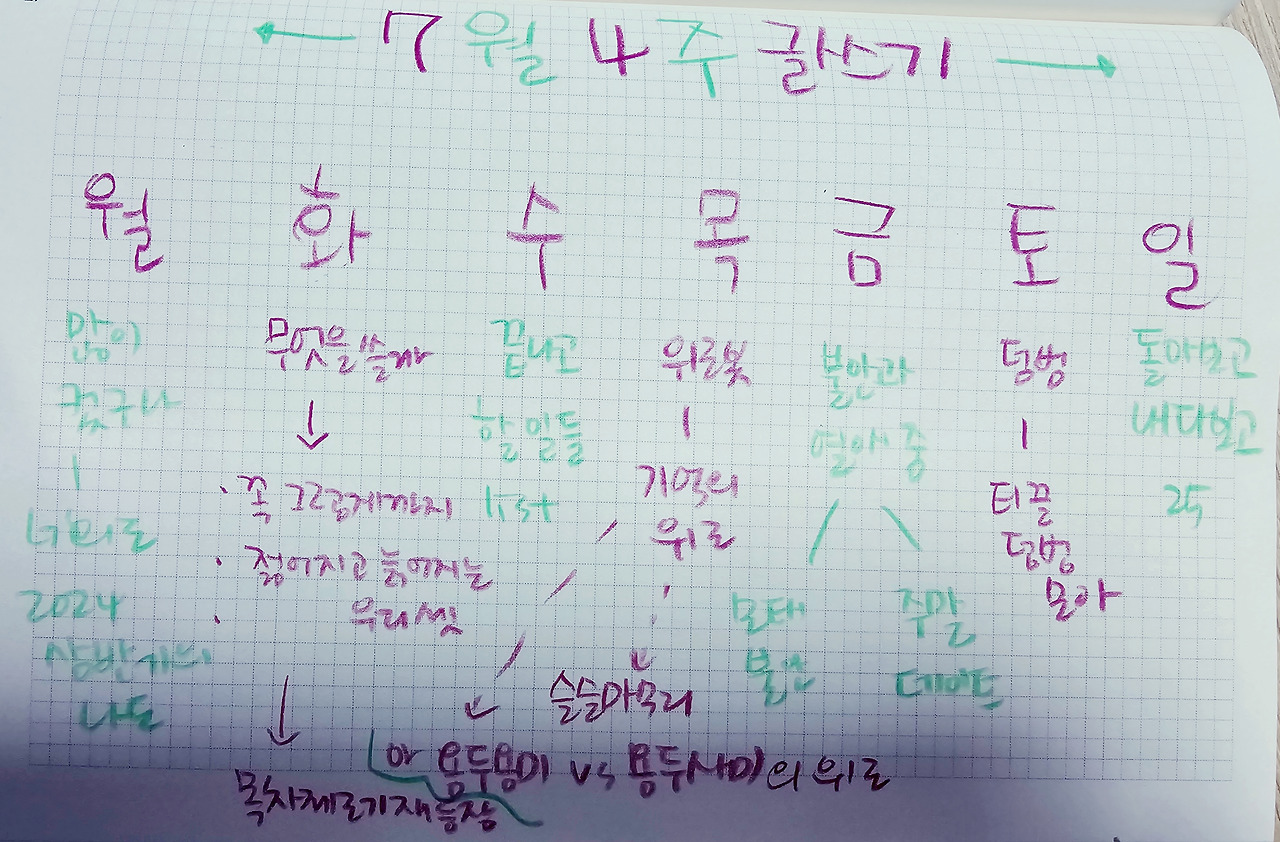 7월 4주 글쓰기
월 화 수 목 금 토 일
많이
컸구나
너희도
2024
상반기의
나도
무엇을 쓸까
· 꼭 그렇게까지
· 젊어지고 늙어지는
우리 셋
목차제로기재등장
끝나고
할 일들
list
위로봇
기억의
위로
슬슬마무리
아 용두용미 vs 용두사미의 위로
불안과
열애 중
모태
불안
주말
데이트
덤벙
티끌
덤벙
모아
돌아보고
내다보고